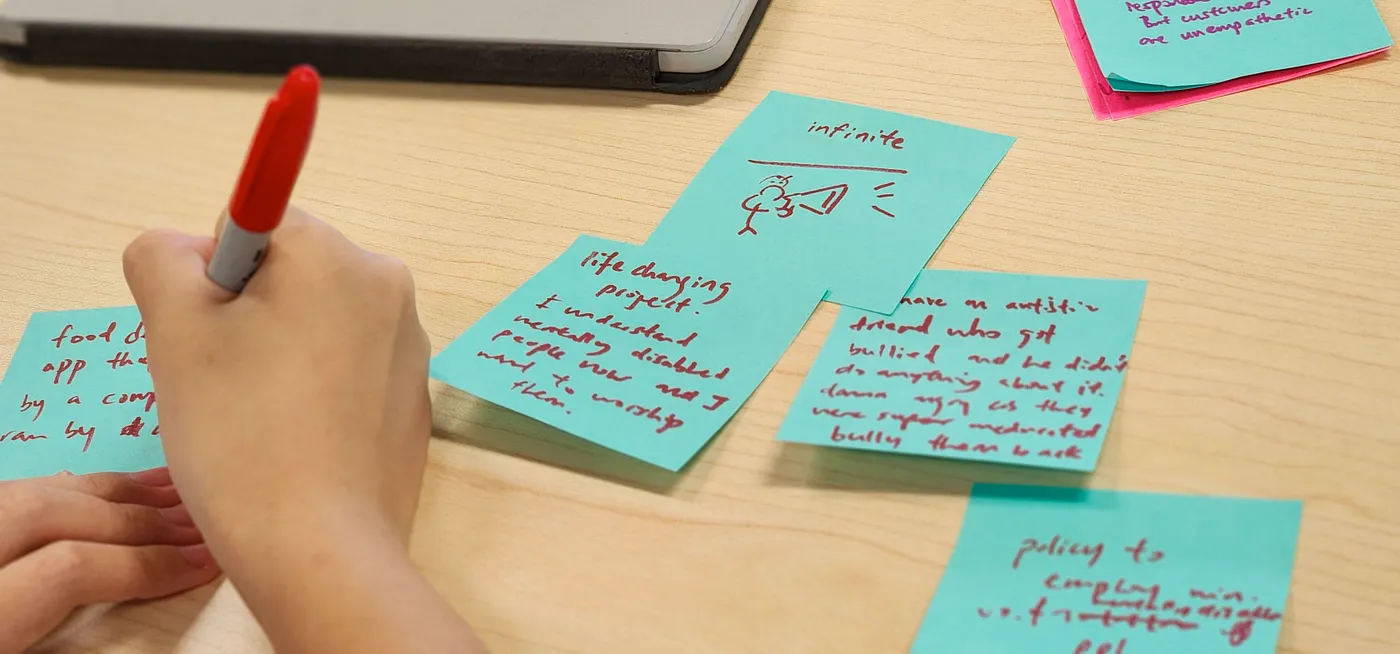 respon
But customers
are unempathetic
infinite
life changing
project.
I understand
mentally disabled
people now and I
want to worship
them.
have an autistic
friend who got
bullied and he didn't
do anything about it.
damn angry as they
were super medicated
bully them back
food d
app tha
by a comp
ran by
policy to
employ min.